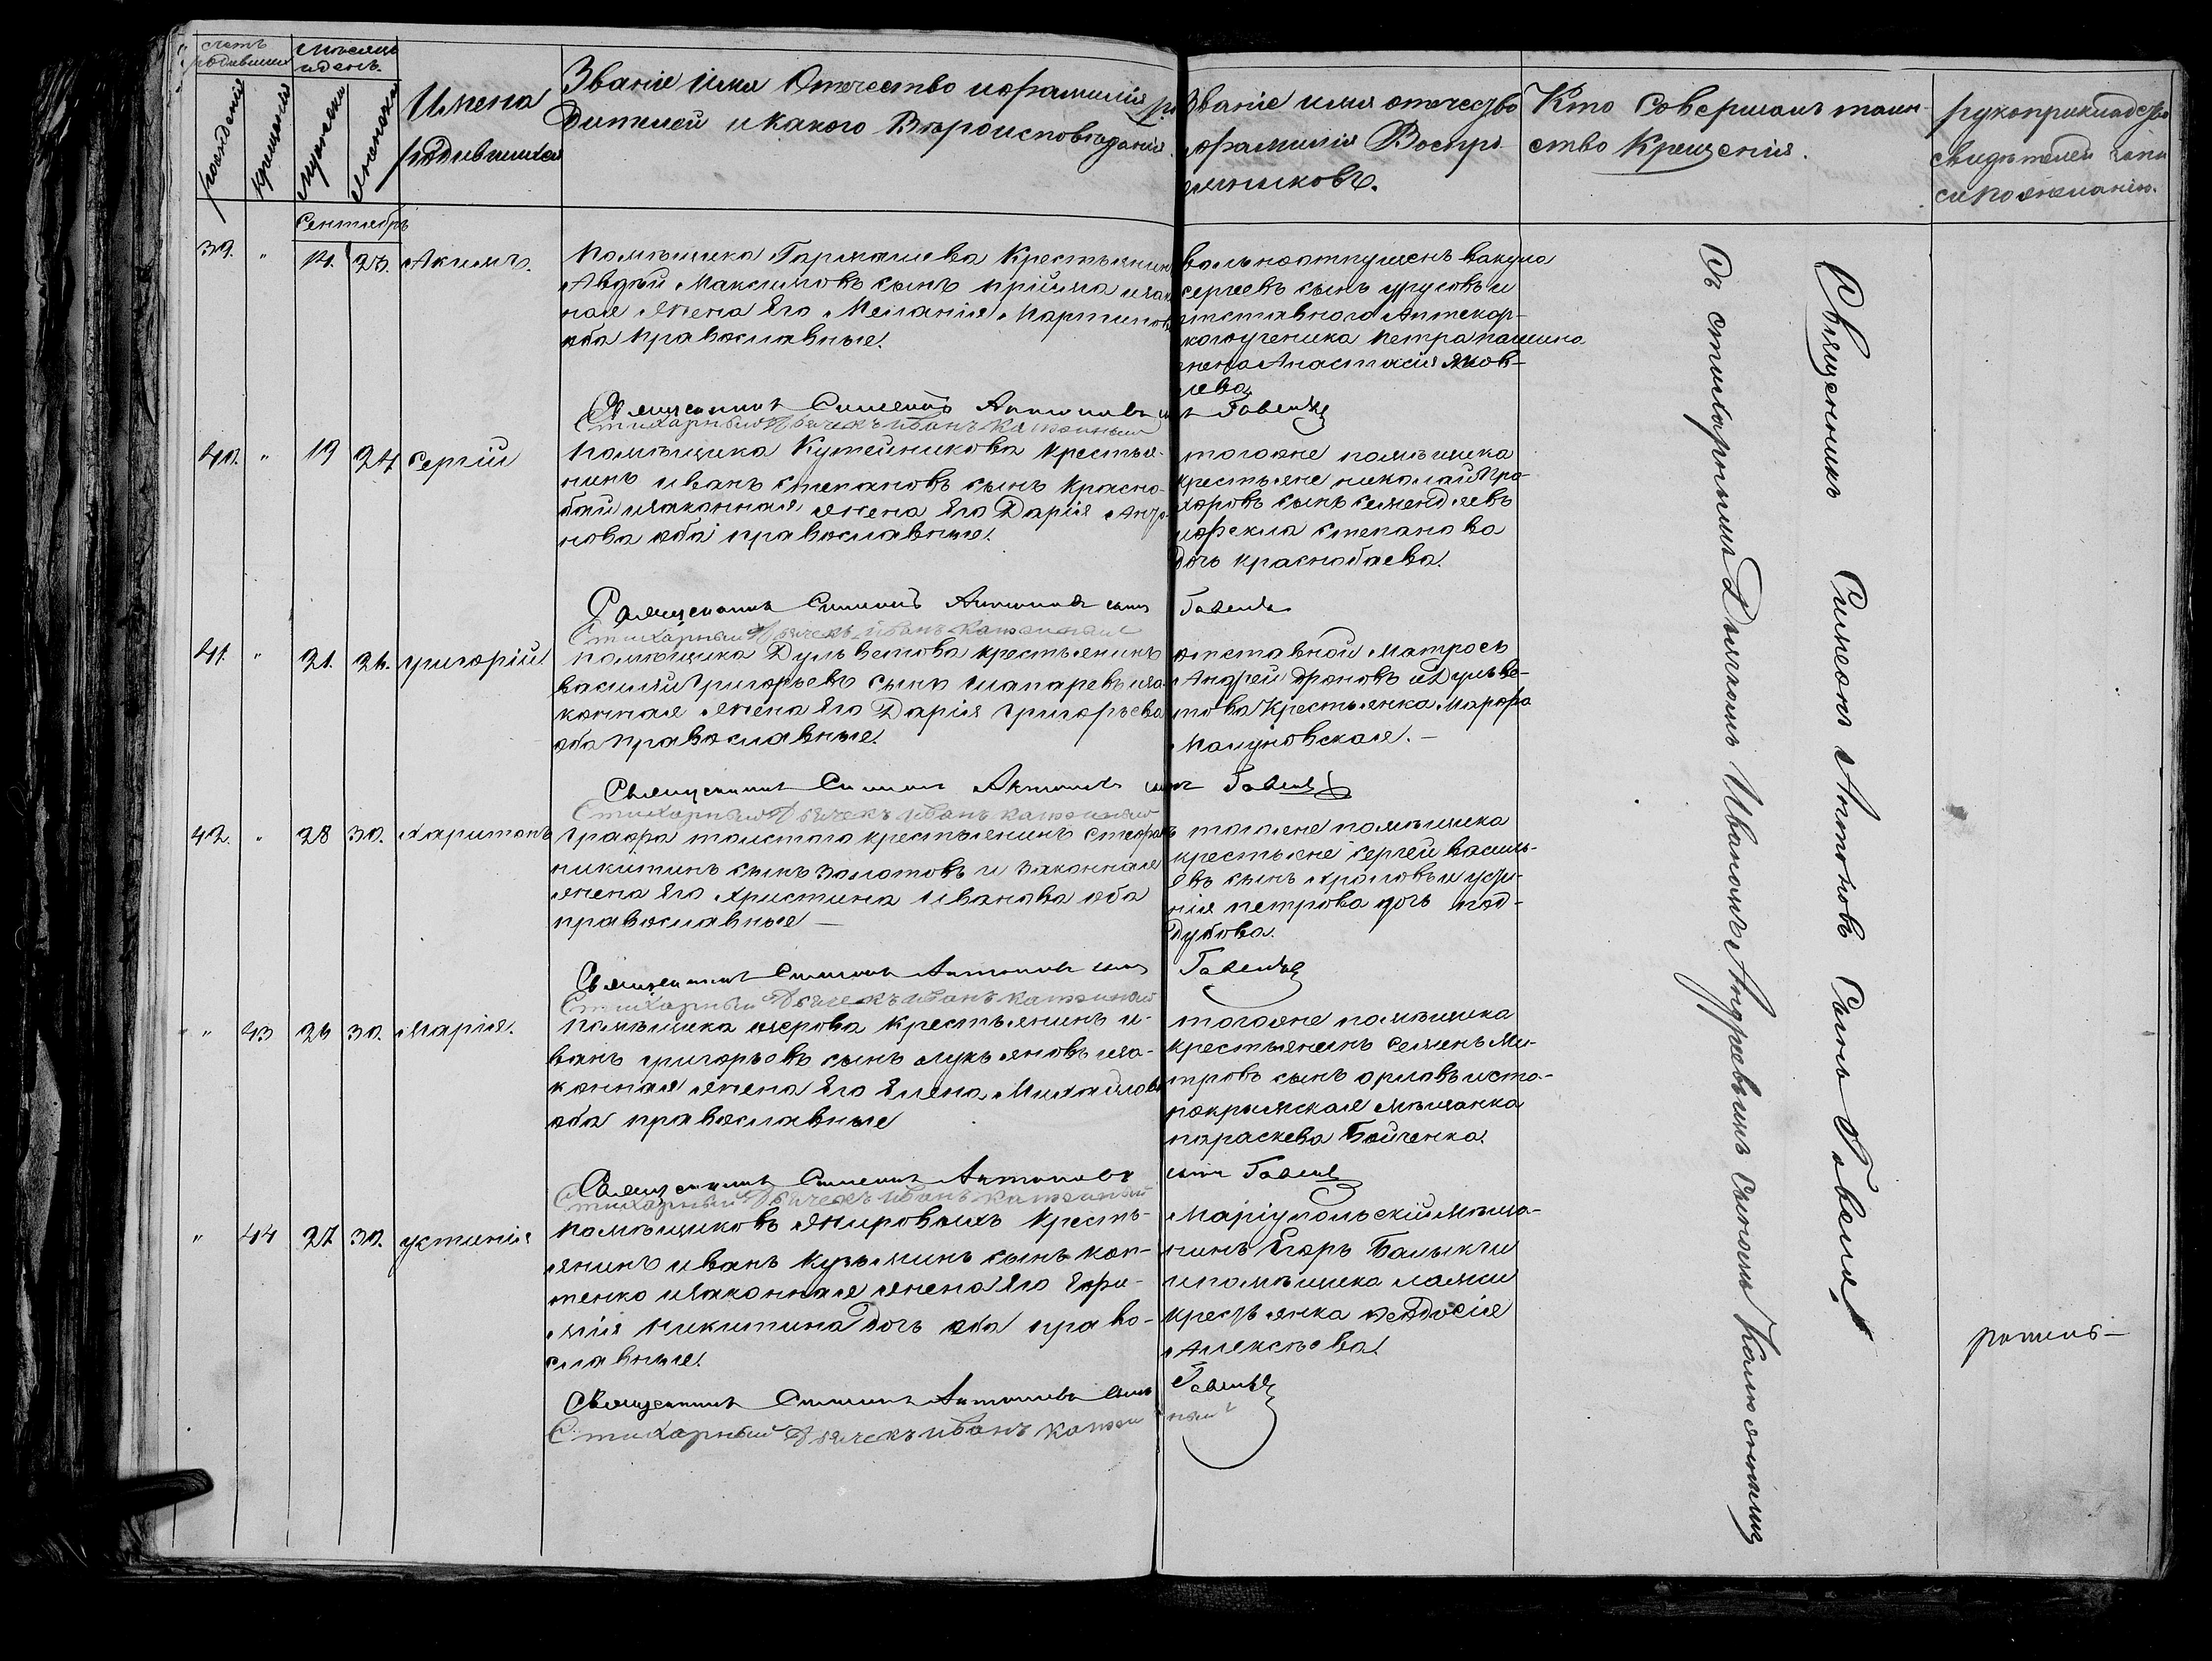 счетъ родившихся
Мѣсяцъ и день.
рожденія
крещенія
Мужеска
Женска
Имена родившихся
Званіе Имя Отечество и фамилія ро
дителей и какого Вѣроисповѣданія.
Званіе имя отечество
и фамилія Воспрі
емниковъ.
Кто Совершалъ таин-
ство Крещенія.
рукоприкладство
свидѣтелей запи
си по желанію.
Сентябрь
39. " 14. 23. Акимъ.
Помѣщика Гармашева Крестьянинъ
Авдѣй Максимовъ сынъ Прійма изакон
ная жена Его Меланія Мартинова
оба православные.
вольноотпущенъ вакула
сергѣевъ сынъ урусовъ и
отставного Аптекар-
скаго ученика петра пашина
жена Анастасія яков-
лева
Священникъ Симеонъ Антоновъ сынъ Говеля
Стихарный Дьячекъ иванъ калюжный
40. " 19 24 Сергій
помѣщика Кутейникова кресть-
нинъ иванъ степановъ сынъ красно-
бай изаконная жена Его Дарія
нова обі православные.
тогоже помѣщика
крестьяне николай Про-
хоровъ сынъ семендяевъ
и фекла степанова
дочь краснобаева.
Священникъ Симеонъ Антоновъ сынъ Говеля
Стихарный Дьячекъ иванъ калюжный
41. " 21. 26. григорій
помѣщика Дульветова крестьянинъ
василій Григорьевъ сынъ шапаревъ иза
конная жена Его Дарія григорьева
оба православные.
отставной матросъ
Андрей дроновъ и Дульве-
това Крестьянка Марфа
Малуновская. —
Священникъ Симеонъ Антоновъ сынъ Говеля
Стихарный Дьячекъ иванъ калюжный
42. " 28 30. Харитонъ
графа толстого крестьянинъ стефанъ
никитинъ сынъ золотовъ и законная
жена Его христина Иванова оба
православные —
тогоже помѣщика
крестьяне сергей василь-
евъ сынъ храповъ и
петрова дочь под-
дубова.
Священникъ Симеонъ Антоновъ сынъ Говеля
Стихарный Дьячекъ иванъ калюжный
" 43 26 30. Марія.
помѣщика Крестьянинъ и-
ванъ григорьевъ сынъ лукьяновъ иза-
конная жена Его Елена Михайлова
оба православные
тогоже помѣщика
крестьянинъ семенъ Ми-
тровъ сынъ орловъ и ста-
рокрымская мѣщанка
параскева Бойченка.
Священникъ Симеонъ Антоновъ сынъ Говеля
Стихарный Дьячекъ иванъ калюжный
" 44 27 30. устинія
помѣщиковъ Кресть-
янинъ иванъ кузьминъ сынъ коп-
тенко изаконная жена Его Ефи-
мія никитина дочь оба право-
славные.
Маріупольскій мѣща-
нинъ Егоръ Балыкчи
и помѣщика
крестьянка феодосія
Алексѣева.
Священникъ Симеонъ Антоновъ сынъ Говеля
Стихарный Дьячекъ иванъ калюжный
Священникъ Симеонъ Антоновъ Сынъ Говеля
Съ стихарнымъ Дьячкомъ Иваномъ Андреевымъ сыномъ Калюжнымъ